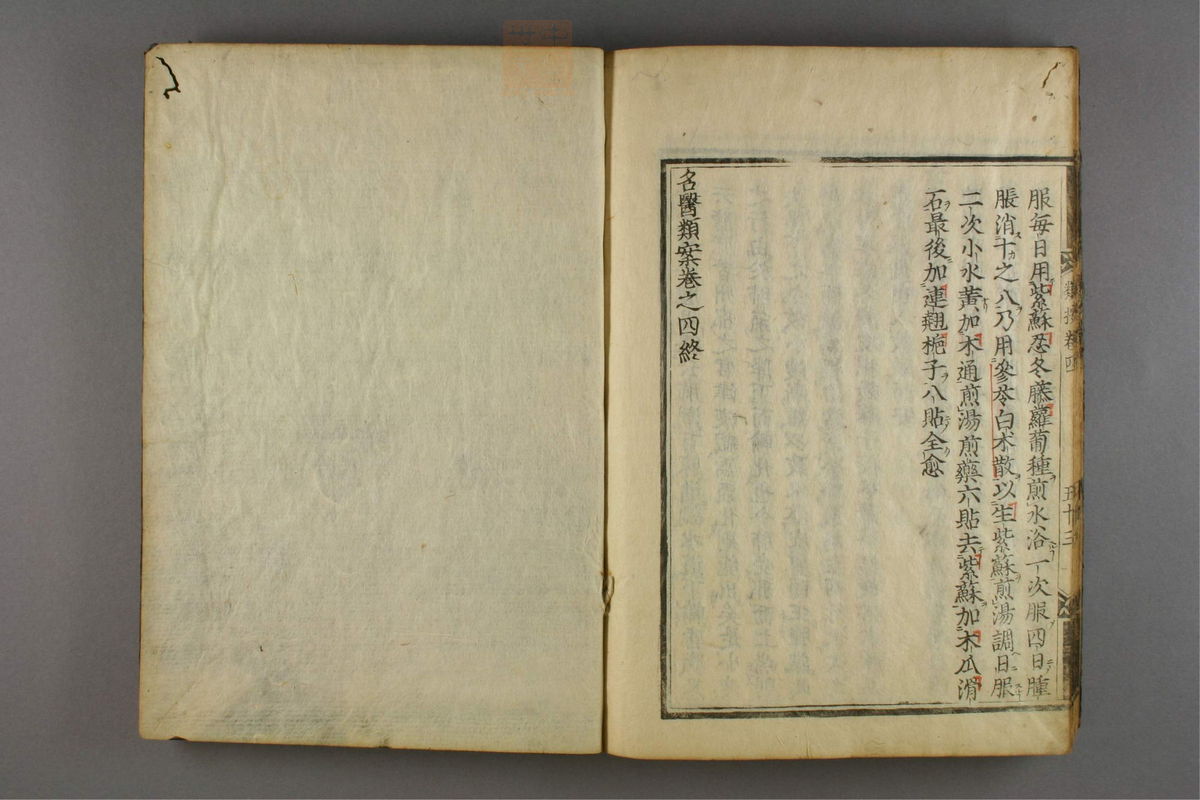 服每日用紫蘇忍冬藤蘿蔔種煎水浴一次服四日腫
脹消十之八乃用參苓白朮散以生紫蘇煎湯調日服
二次小水黃加木通煎湯煎藥六貼去紫蘇加木瓜滑
石最後加連翹梔子八貼全愈
名醫類案卷之四終
類按卷四
五十三